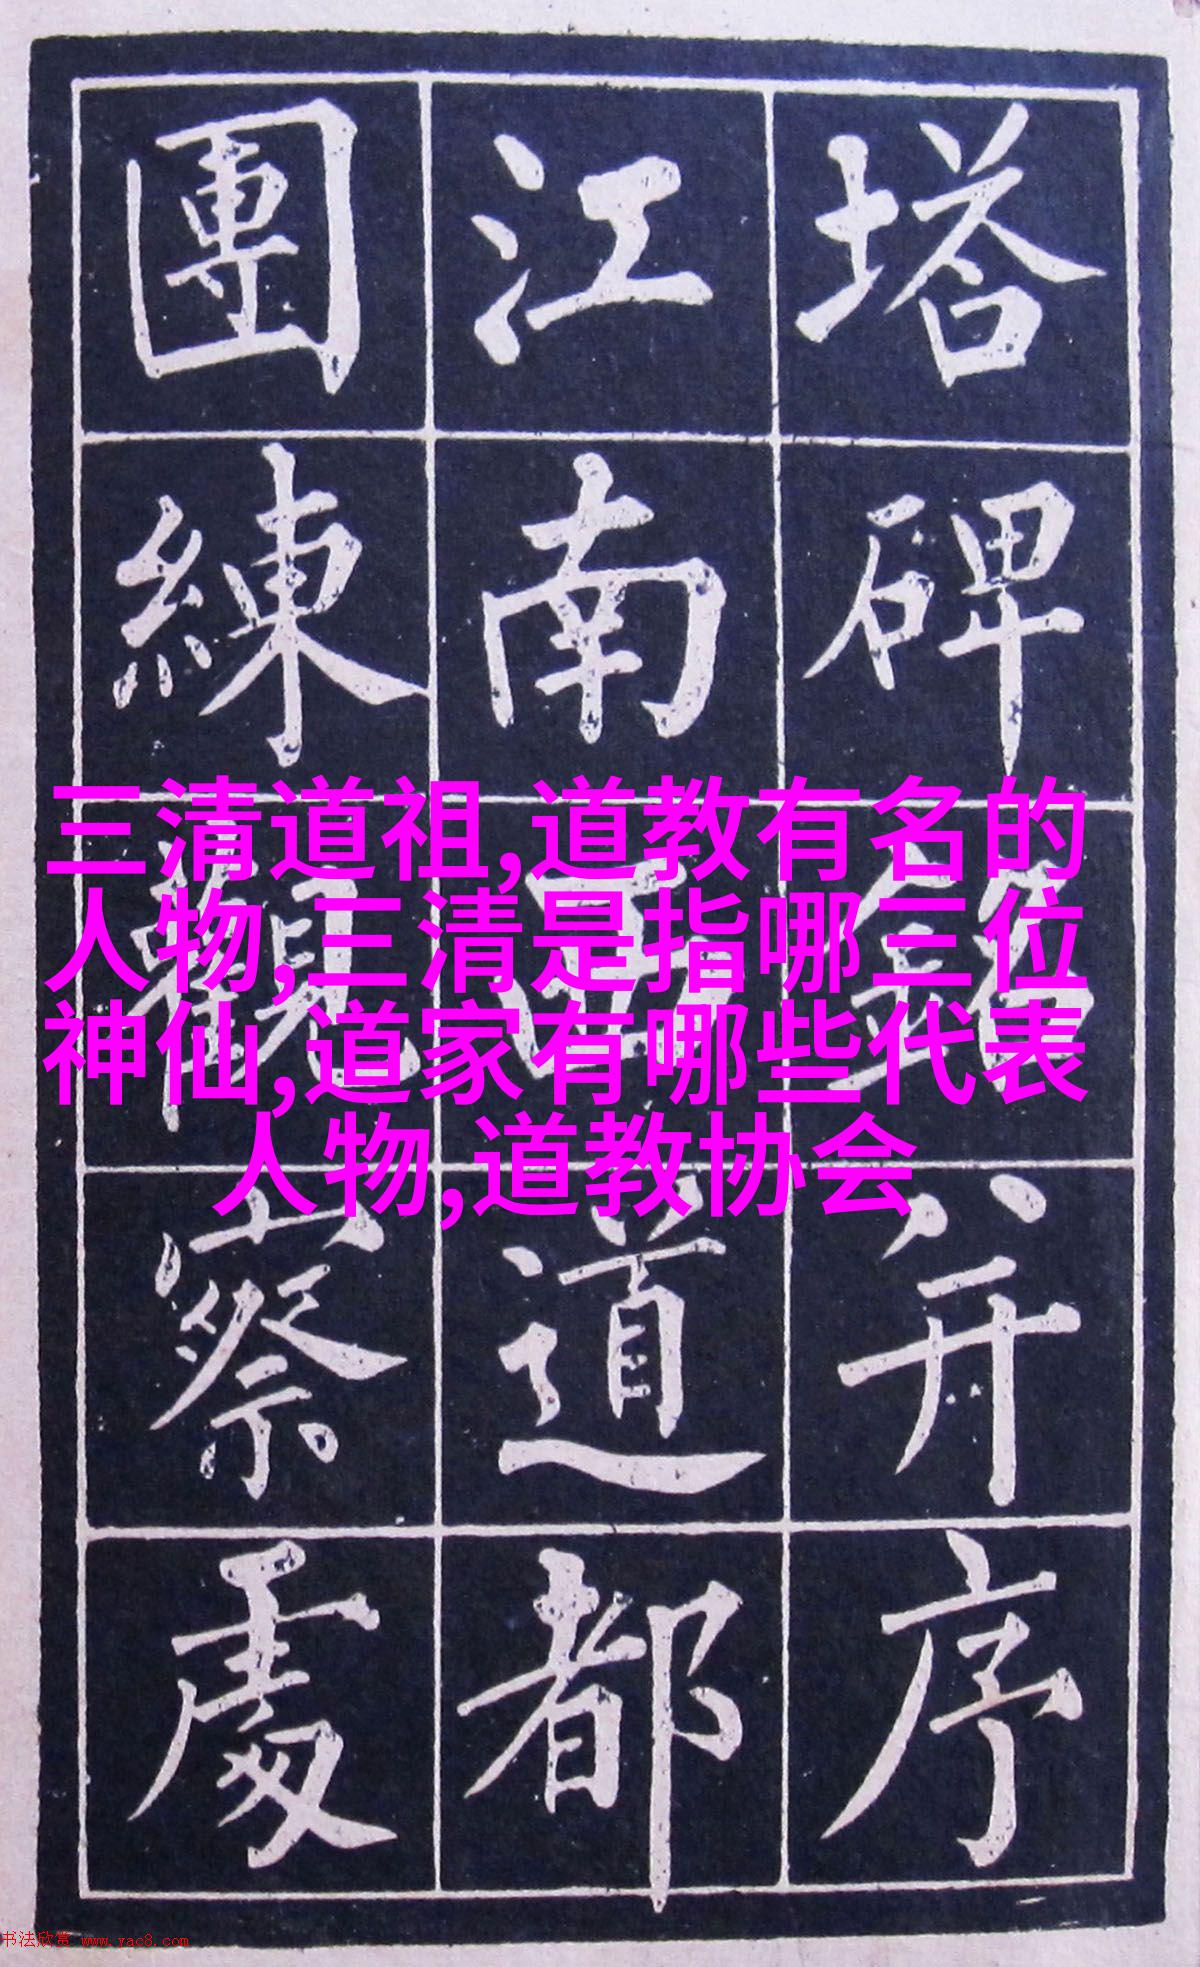 塔碑銘并序
江南西道都
團練觀察處
三清道祖,道教有名的
人物,三清是指哪三位
神仙,道家有哪些代表
人物,道教协会
书法欣赏 www.yac8.com